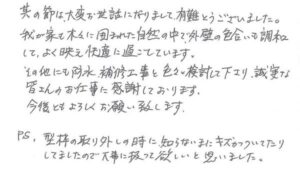 其の節は大変お世話になりまして有難とうございました。
我が家も木々に囲まれた自然の中で外壁の色合いも調和
して、よく映え快適に過ごしています。
その他にも防水、補修工事と色々検討して下さり、誠実な
皆さんのお仕事に感謝しております。
今後ともよろしくお願い致します。
P.S. 型枠の取り外しの時に知らないまにキズがついてたり
してましたので大事に扱って欲しいと思いました。